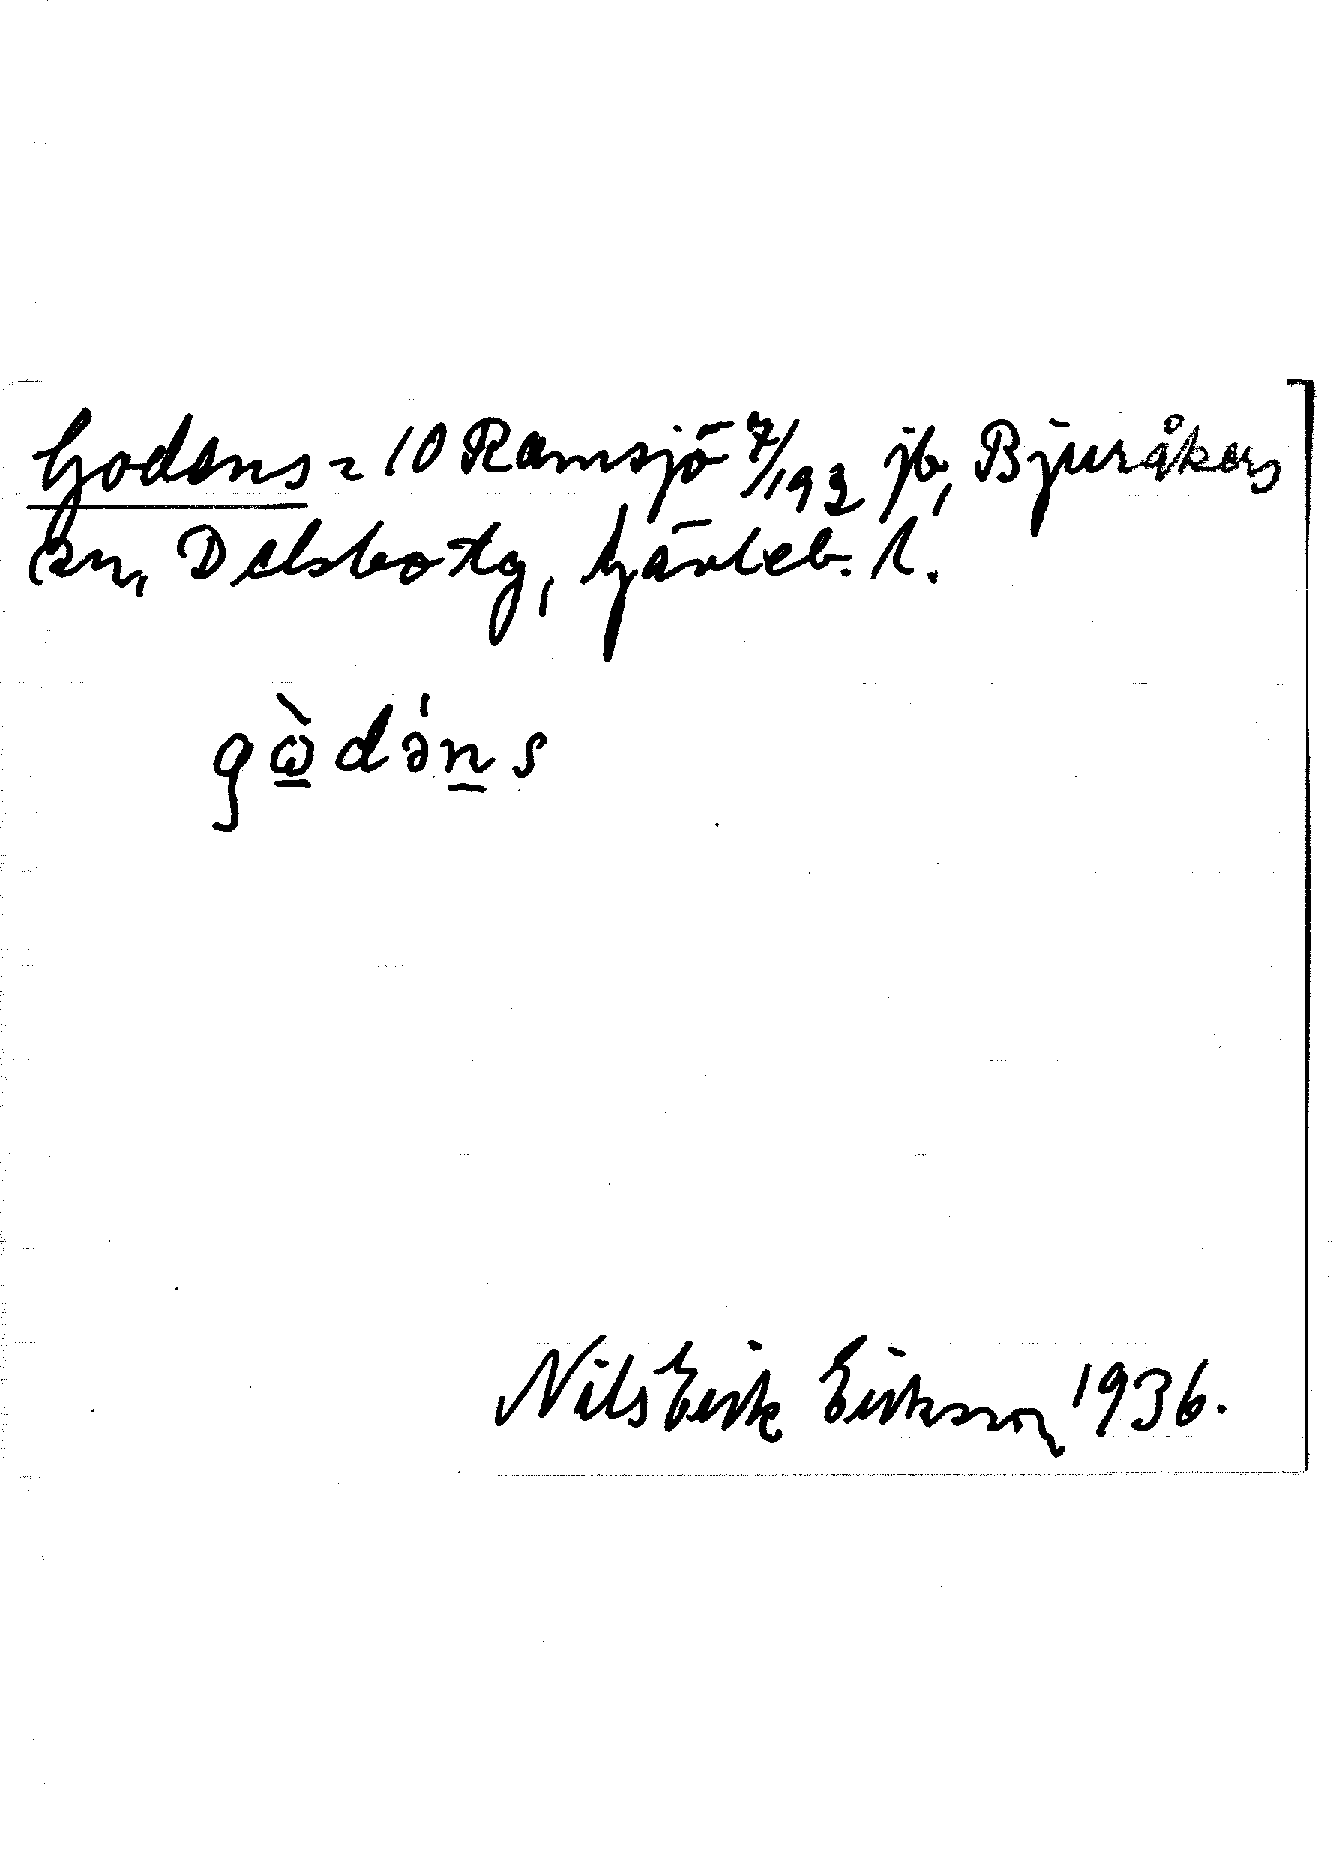 Godens = 10 Ramsjö 7/192 jb, Bjuråkers
sn, Delsbo tg, Gävleb. l.
gὼ̱də́ṉs
Nils Erik Eriksson 1936.